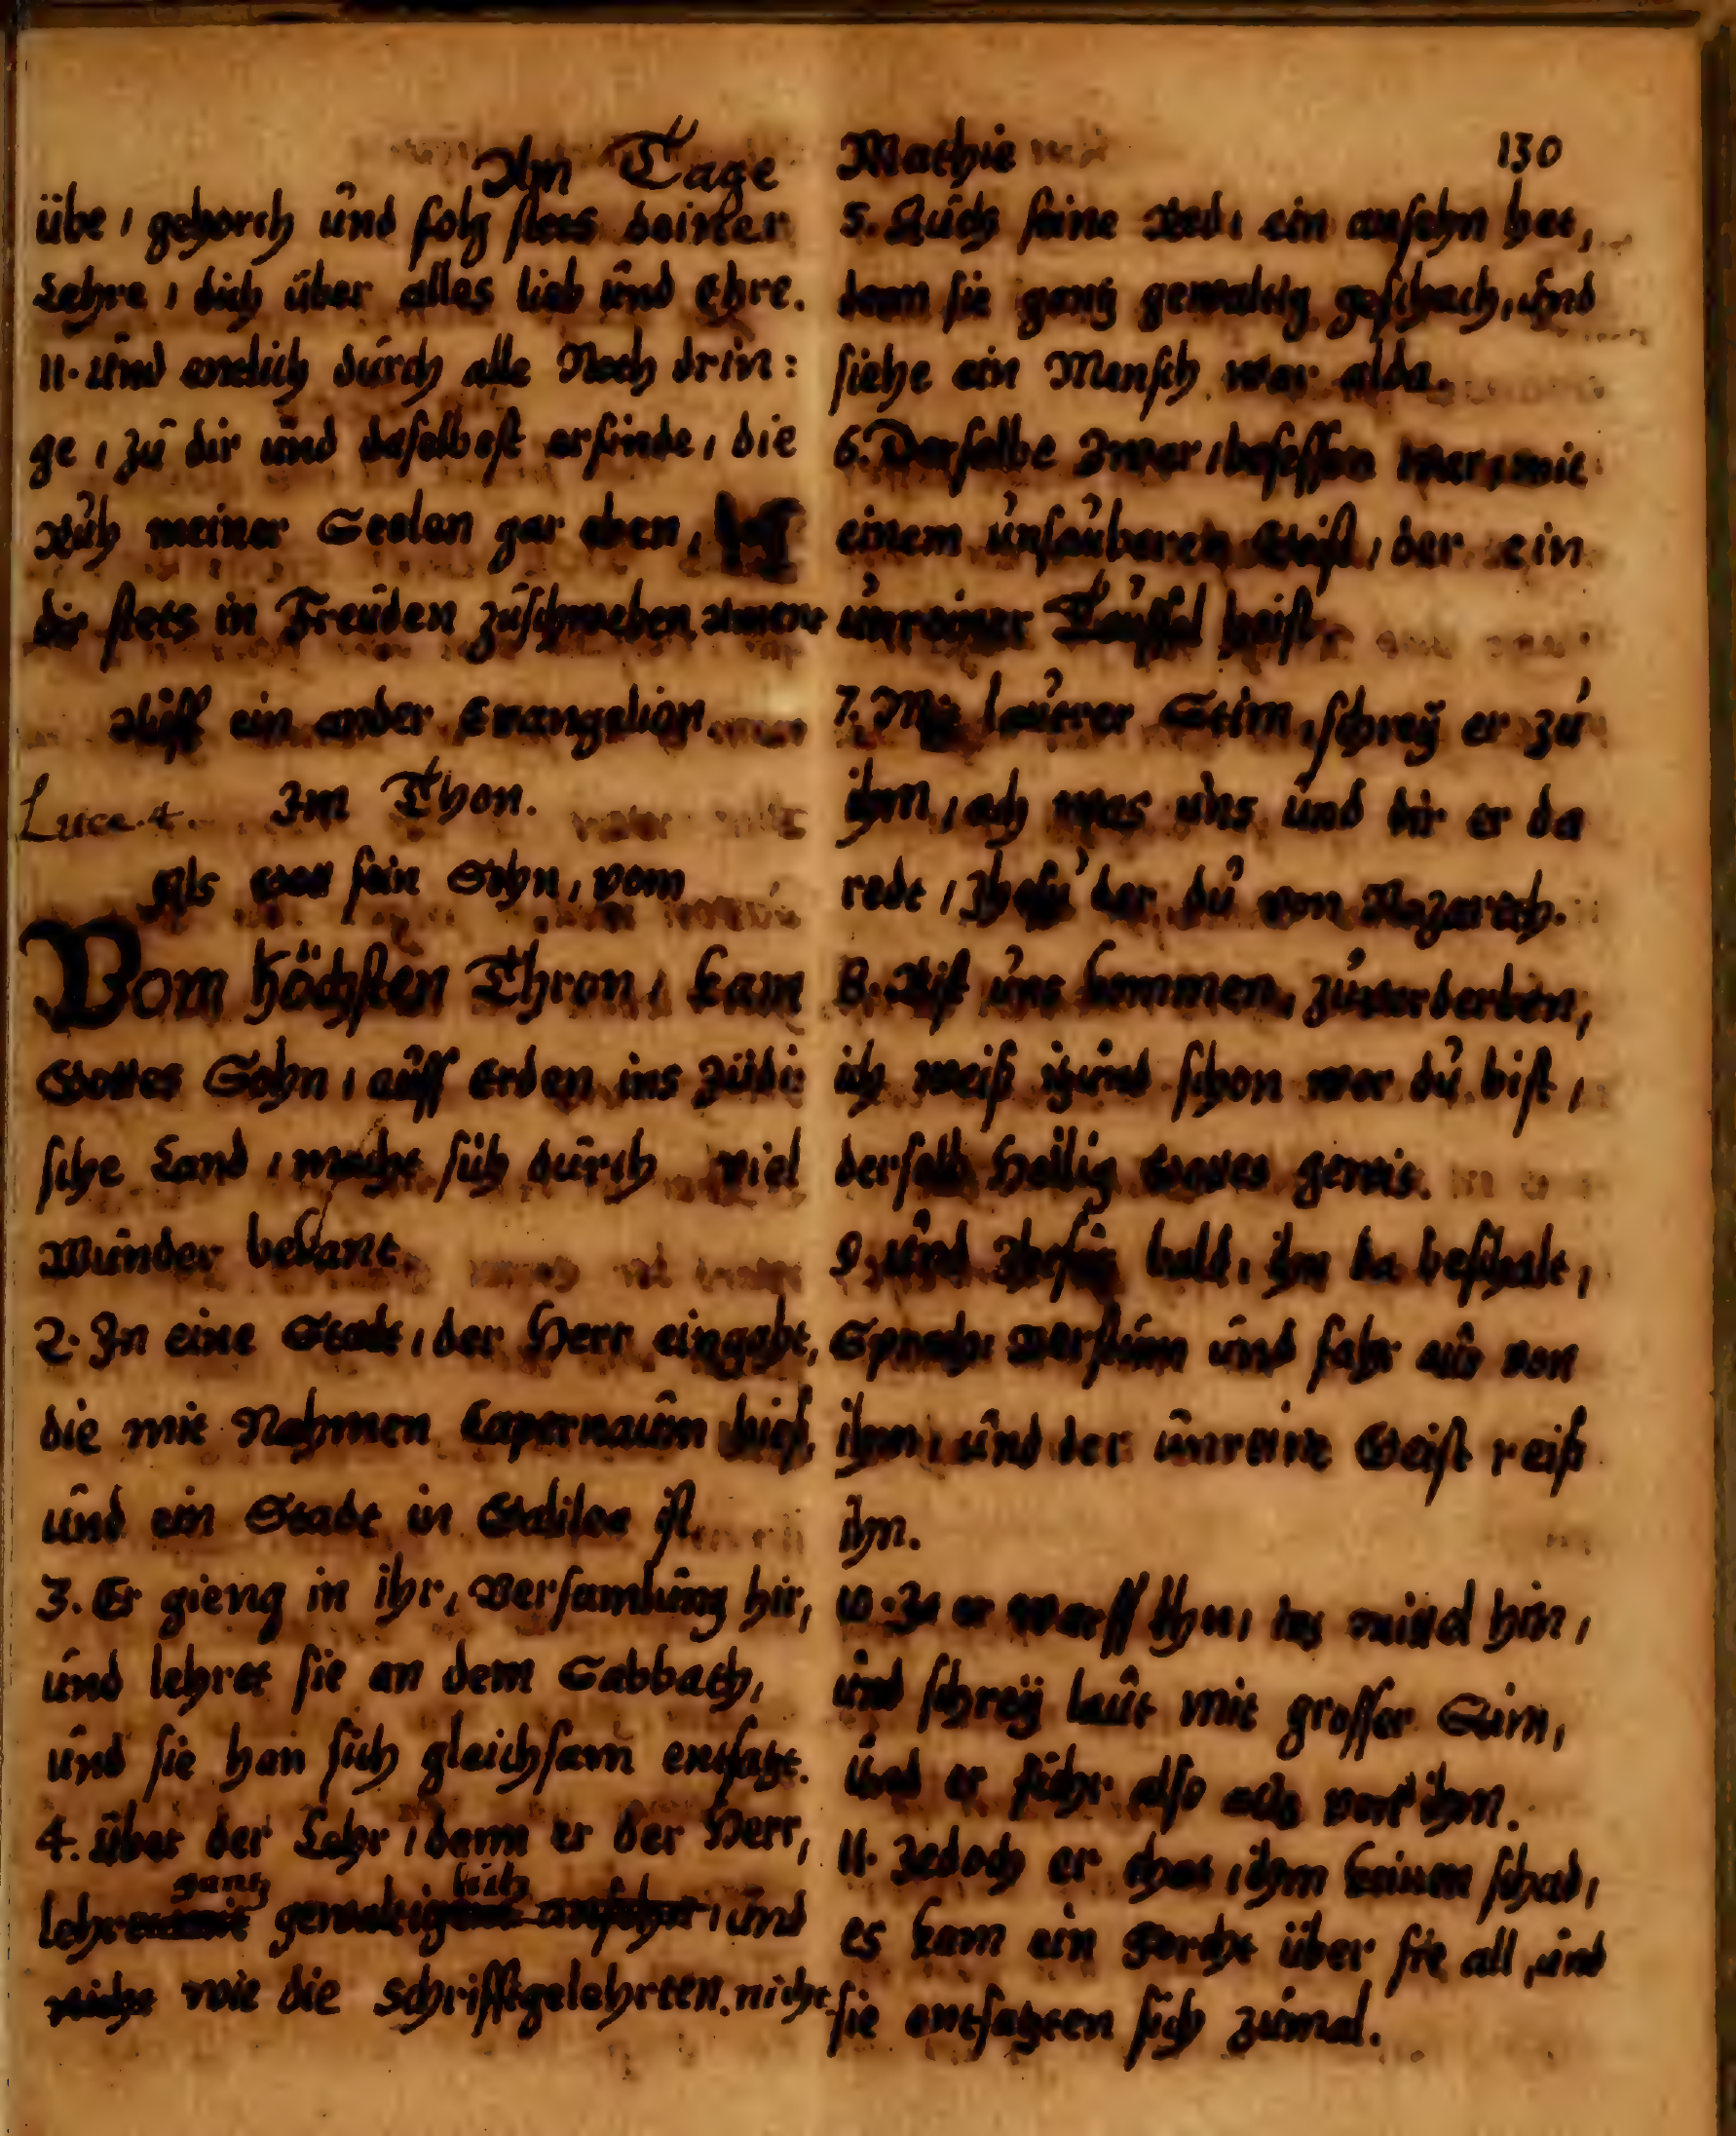 Am Tage Mathie 130
übe, gehorch und folg stets deiner
Lehre, dich über alles lieb und Ehre.
11. Und endlich durch alle Noth drin:
ge, zu dir und daselbest erfinde, die
Ruh meiner Seelen gar eben,
dir stets in Freuden zuschweben, Amen
Auff ein ander Evangelion.
Luca. 4. Im Thon.
Als war sein Sohn, vom
Vom höchsten Thron, kam
Gottes Sohn, auff Erden ins Jüdi:
sche Land, macht sich durch viel
Wunder bekant.
2. In eine Stadt, der Herr eingaht,
die mit Nahmen Capernaum hies,
und ein Stadt in Galilea ist.
3. Er gieng in ihr, Versamlung hir,
und lehret sie an dem Sabbath,
und sie han sich gleichsam entsatzt.
4. Über der Lehr, denn er der Herr,
gantz lich
lehret mit gewaltig ansehn, und
nicht wie die Schrifftgelehrten. nicht
5. Auch seine Red, ein ansehn het,
denn sie gantz gewaltig geschach, und
siehe ein Mensch war alda.
6. Derselbe Zwar, besessen war, mit
einem unsauberen Geist, der ein
unreiner Teuffel heist.
7. Mit lauter Stim, schrey er zu
ihm, ach was uns und dir er da
redt, Jhesu der du von Nazareth.
8. Bist uns kommen, zuverderben,
ich weiß itzund schon wer du bist,
derselb Heilig Gottes gewis.
9. Und Jhesus bald, ihn da beschalt,
Sprach: Verstum und fahr aus von
ihm, und der unreine Geist reiß
ihn.
10. Ja er warff ihn, ins mittel hin,
und schrey laut mit grosser Stim,
und er fuhr also aus von ihm.
11. Jedoch er that, ihm keinen schad,
es kam ein Forcht über sie all, und
sie entsatzten sich zumal.